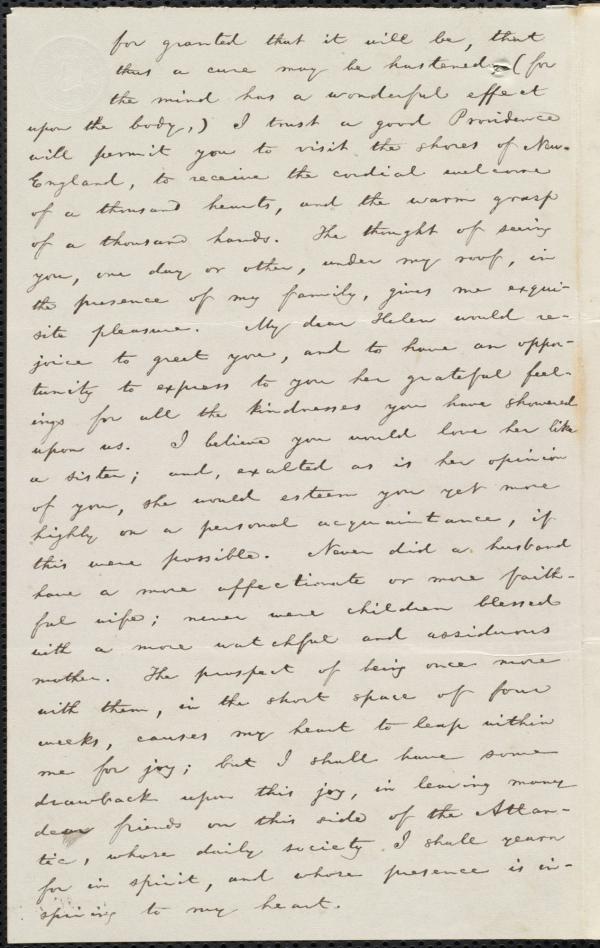 for granted that it will be, that
thus a cure may be hastened, (for
the mind has a wonderful effect
upon the body,) I trust a good Providence
will permit you to visit the shores of New-
England, to receive the cordial welcome
of a thousand hearts, and the warm grasp
of a thousand hands. The thought of seeing
you, one day or other, under my roof, in
the presence of my family, gives me exqui-
site pleasure. My dear Helen would re-
joice to greet you, and to have an oppor-
tunity to express to you her grateful feel-
ings for all the kindnesses you have showered
upon us. I believe you would love her like
a sister; and, exalted as is her opinion
of you, she would esteem you yet more
highly on a personal acquaintance, if
this were possible. Never did a husband
have a more affectionate or more faith-
ful wife; never were children blessed
with a more watchful and assiduous
mother. The prospect of being once more
with them, in the short space of four
weeks, causes my heart to leap within
me for joy; but I shall have some
drawback upon this joy, in leaving many
dear friends on this side of the Atlan-
tic, whose daily society I shall yearn
for in spirit, and whose presence is in-
spiring to my heart.